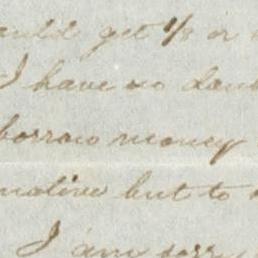 could get 1/3 or
I have no doub
borrow money
native but to
I am sorry